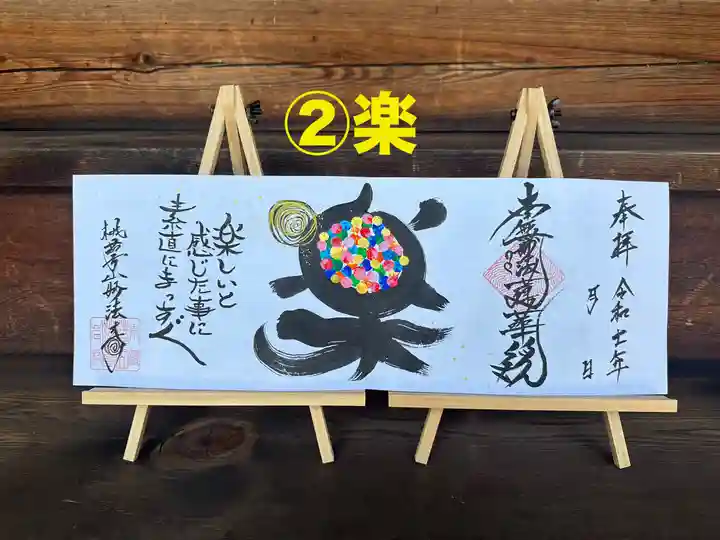 ②楽
奉拝 令和七年
月 日
南無妙法蓮華経
楽
楽しいと
感じた事に
素直にまっすぐ
妙法寺